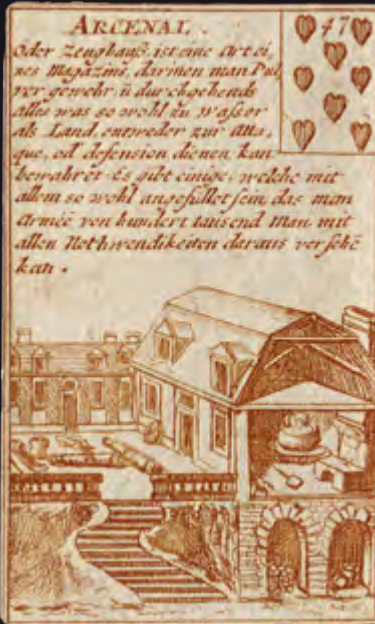 ARCENAL.
47
Oder Zeughauß. ist eine Art ei,
nes Magazins, darinen man Pul,
ver gewehr, ū durchgehends
alles was so wohl zu waßer
als Land, entweder zur Atta,
que, od' defension dienen kan
bewahret. Es gibt einige, welche mit
allem so wohl angefüllet sein, das man
Armée von hundert tausend Man, mit
allen Nothwendikeiten daraus versehē
kan.